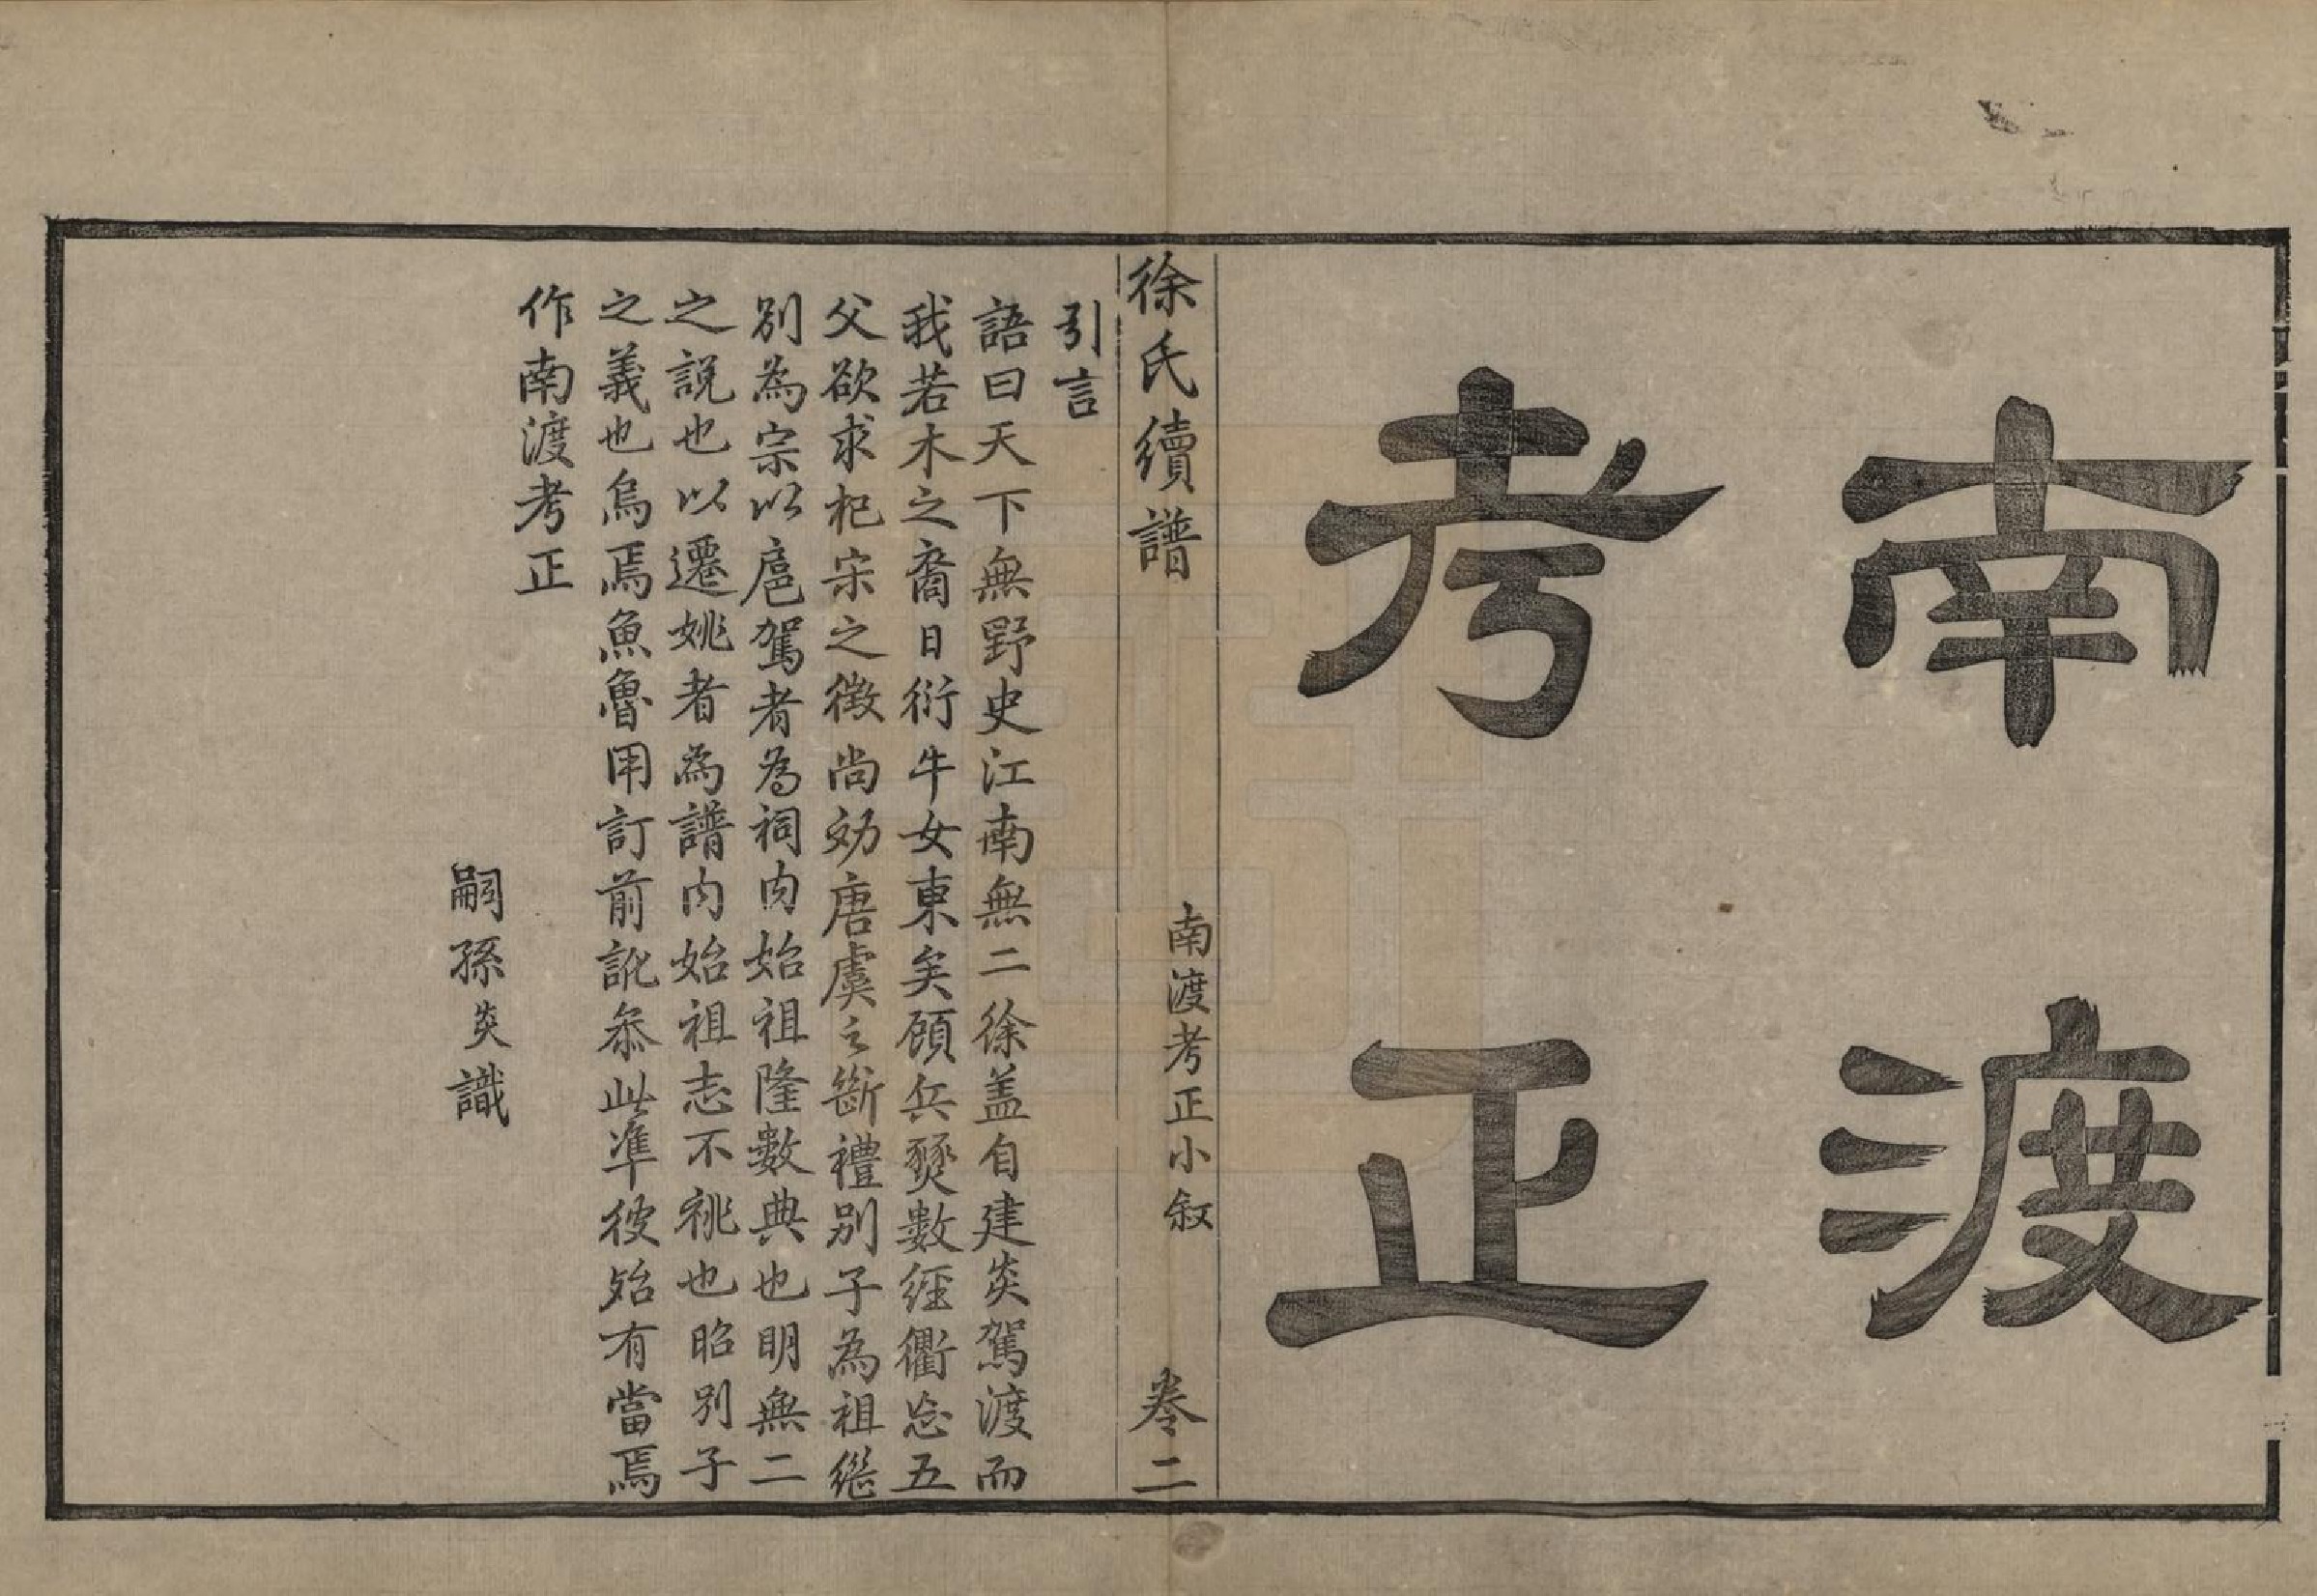 南渡
考正
徐氏續譜
南渡考正小叙
卷二
引言
語曰天下無野史江南無二徐盖自建炎駕渡而
我若木之裔日衍牛女東矣顧兵燹數經衢忩五
父欲求杞宋之徵尚効唐虞之斷禮別子為祖繼
別為宗以扈駕者為祠内始祖隆數典也明無二
之説也以遷姚者為譜内始祖志不祧也昭別子
之義也烏焉魚魯用訂前訛叅此準彼殆有當焉
作南渡考正
嗣孫炎識